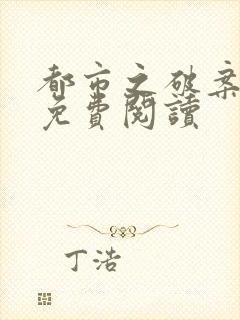 都市之破案
免費閱讀
丁浩